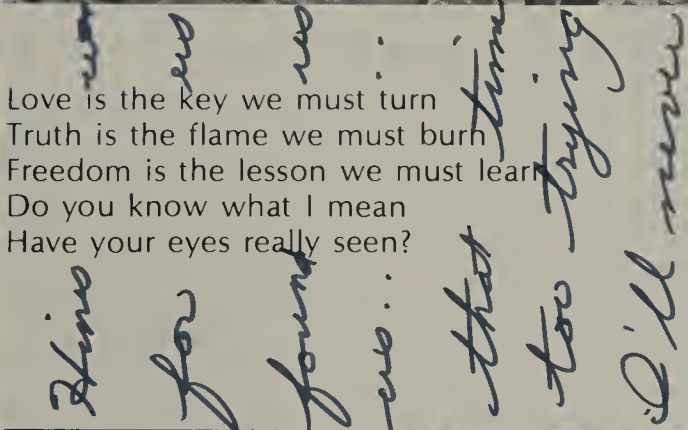 Love is the key we must turn
Truth is the flame we must burn
Freedom is the lesson we must learn
Do you know what I mean
Have your eyes really seen?
for us
that time
too trying
I'll never